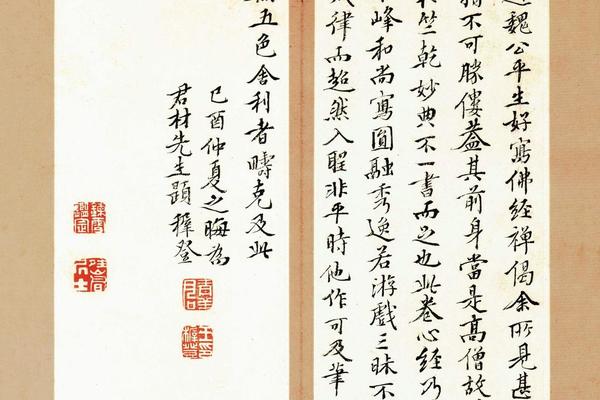 魏公平生好寫佛經禪偈余所見甚
指不可勝僂蓋其前身當是高僧故
於竺乾妙典不一書而足也此卷心經乃
峰和尚寫圓融秀逸若游戲三昧不
律而超然入聖非平時他作可及筆
五色舍利者疇克及此
己酉仲夏之晦為
君材先生題穉登